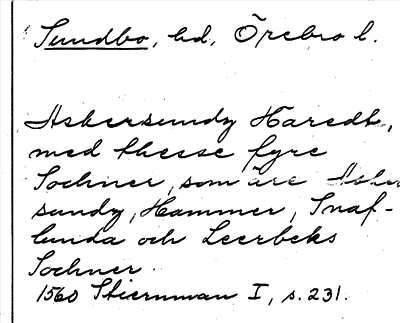 Sundbo, hd, Örebro l.
Askersundz Haredt,
med thesse fyre
Sochner, som äre Asker
sundz, Hammer, Snaf-
lunda och Leerbeks
Sochner.
1560 Stiernman I, s. 231.